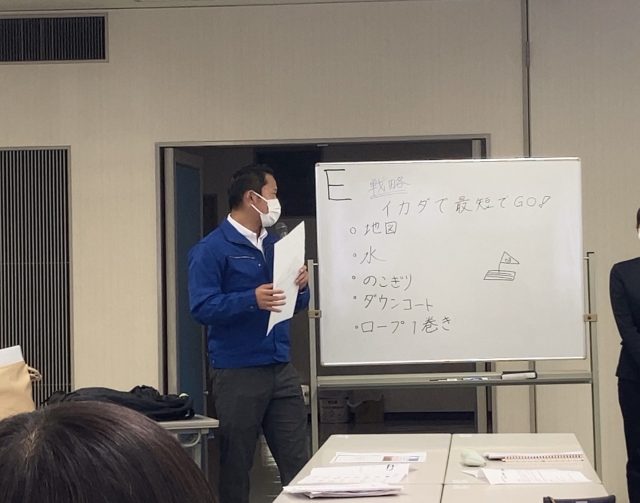 E
戦略
イカダで最短でGO!
○地図
・水
・のこぎり
・ダウンコート
・ロープ1巻き